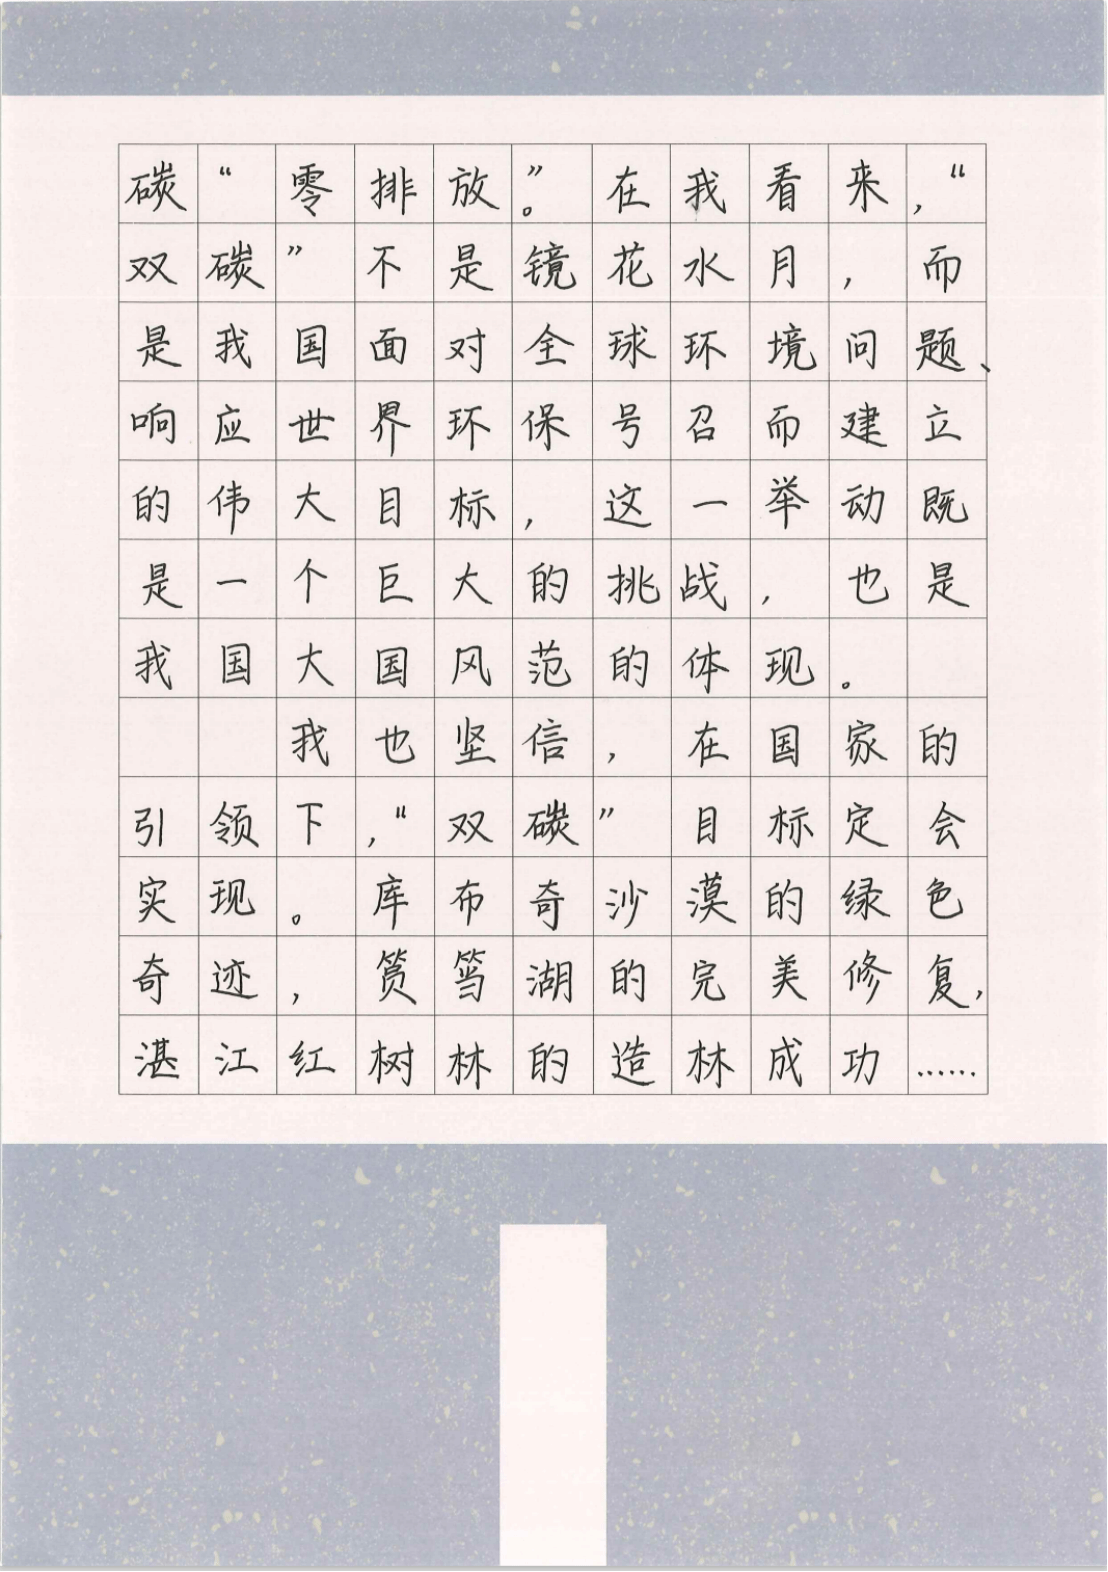 碳“零排放”。在我看来,“
双碳”不是镜花水月,而
是我国面对全球环境问题、
响应世界环保号召而建立
的伟大目标,这一举动既
是一个巨大的挑战,也是
我国大国风范的体现。
我也坚信,在国家的
引领下,“双碳”目标定会
实现。库布奇沙漠的绿色
奇迹,筼筜湖的完美修复,
湛江红树林的造林成功……